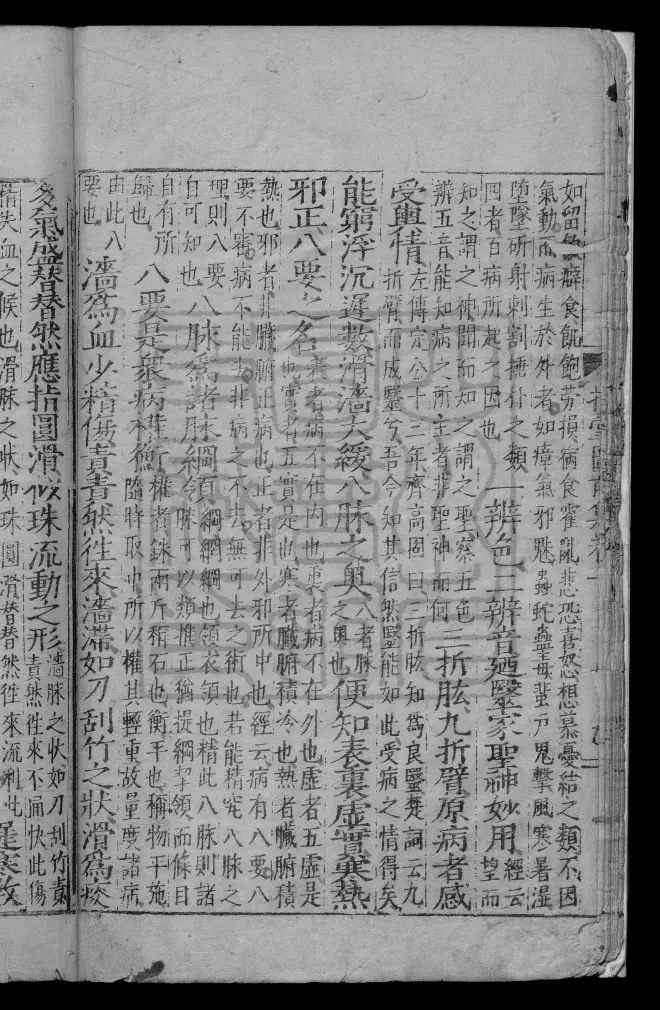 如留飲癖食飢飽勞損宿食霍亂悲恐喜怒想慕憂結之類不因
氣動而病生於外者如瘴氣邪魅蟲蛇蠱毒蜚尸鬼擊風寒暑濕
墮墜斫射刺割捶仆之類
四者百病所起之因也
一辨色二辨音廼毉家聖神妙用
經云望而
知之謂之神聞而知之謂之聖察五色
辨五音能知病之所主者非聖神而何
三折肱九折臂原病者感
受輿情
左傳定公十三年齊高固曰三折肱知爲良毉楚詞云九
折臂而成毉兮吾今知其信然毉能如此受病之情得矣
能窮浮沉遲數滑濇大緩八脉之奧
八者脉之奧也
便知表裏虛實寒熱
邪正八要之名
表者病不在內也裏者病不在外也虛者五虛是
也實者五實是也寒者臟腑積冷也熱者臟腑積
熱也邪者非臟腑正病也正者非外邪所中也經云病有八要八
要不審病不能去非病之不去無可去之術也若能精究八脉之
理則八要自可知也
八脉爲諸脉綱領
綱網綱也領衣領也精此八脉則諸
脉可以類推正猶提綱挈領而條目
自有所歸也
八要是衆病權衡
權者銖兩斤稱石也衡平也稱物平施
隨時取中所以權其輕重故量度諸病
由此八要也
濇爲血少精傷責責然徃來濇滯如刀刮竹之狀滑爲痰
多氣盛替替然應指圓滑似珠流動之形
濇脉之狀如刀刮竹責
責然徃來不通快此傷
精失血之候也滑脉之狀如珠圓滑替替然徃來流利此
是寒故